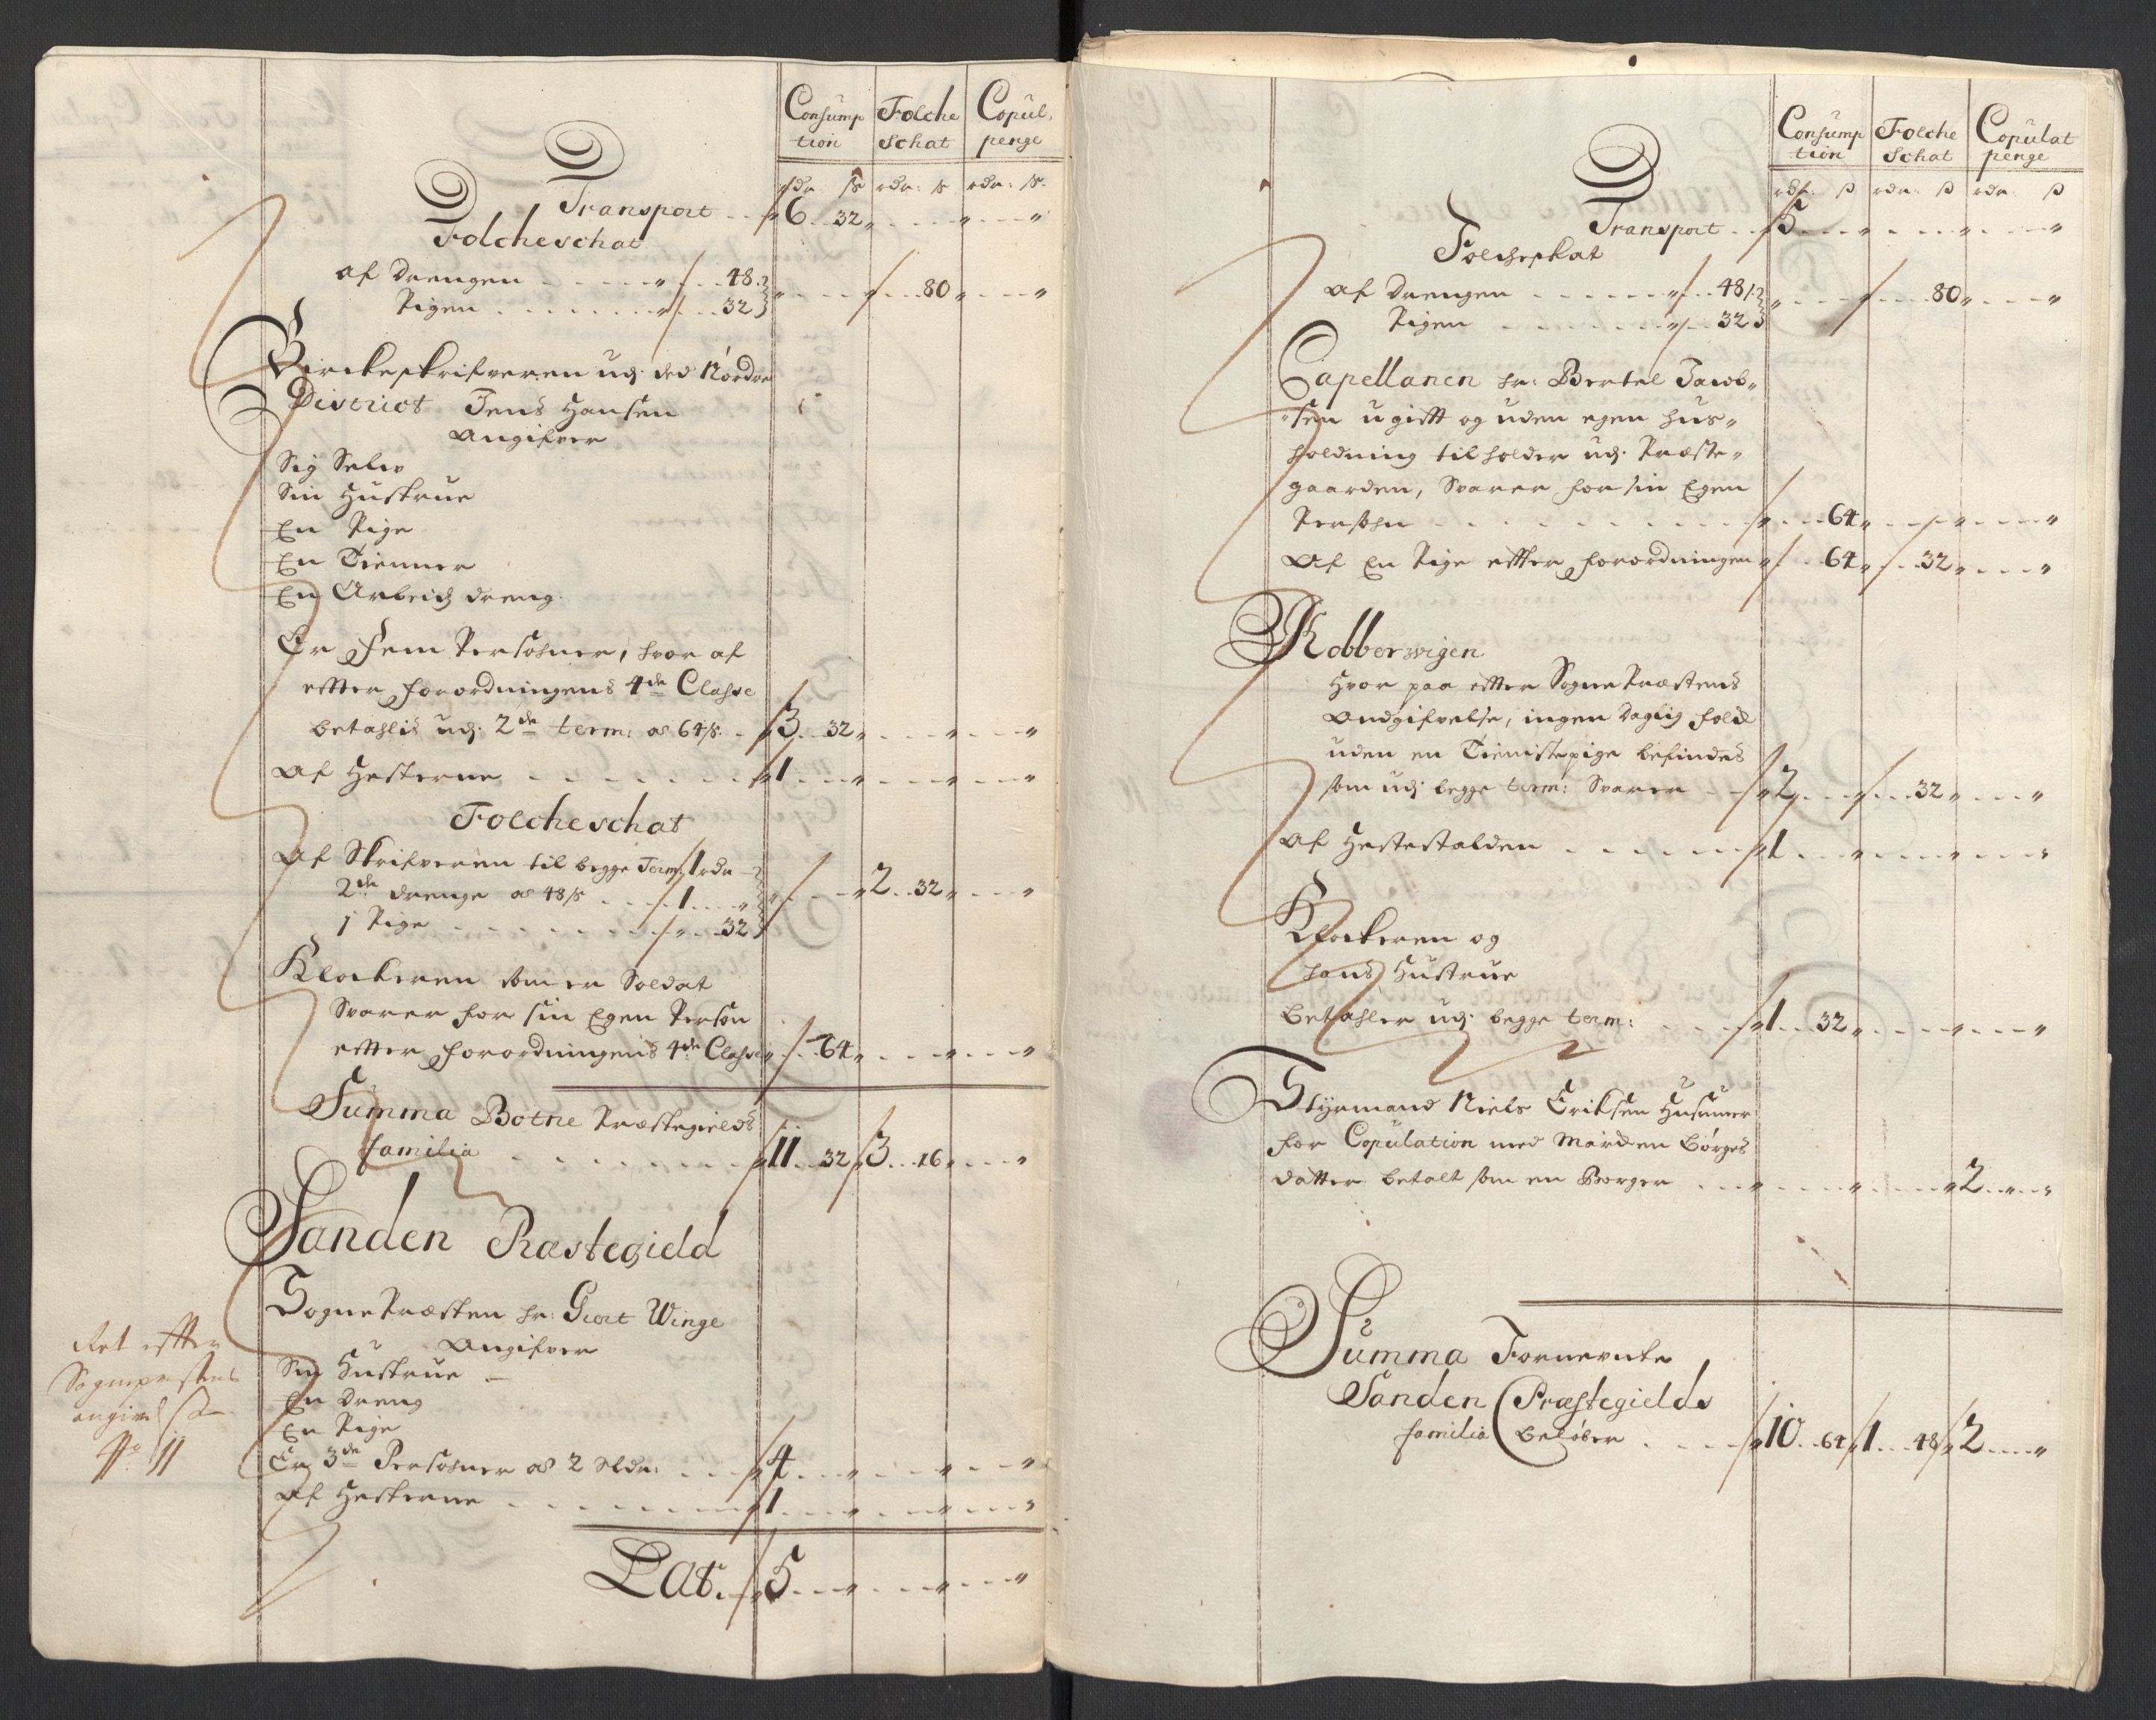 Consump Folche Copul.
tion Schat penge
rdr ß rdr: ß rdr: ß.
Transport 6 32
Folcheschat
af Drengen 48
Pigen 32 80
Birckeskrifveren udj ded Nordre
District Jens Hansen
Angifver
Sig Selv
Sin Hustrue
En Pige
En Tienner
En Arbeidz dreng
Er Fem Persohner, hvor af
efter forordningens 4de Classe
betahlis udj. 2de term: a 64 ß. 3 32
Af Hesterne 1
Folcheschat
Af Skrifveren til begge Term: 1 rdr
2de Drenge a 48 ß 1 2 32
1 Pige 32
Klockeren som er Soldat
Svarer for sin Egen Person
efter forordningens 4de Classe 64
Summa Botne Præstegields
familia 11 32 3 16
Sanden Præstegield
Sogne Præsten hr: Giert Winge
Angifver
Sin Hustrue
En Dreng
En Pige
Er 3de Persohner a 2 Sldr: 4
Af Hesterne 1
Lat. 5
Ret efter
Sognepræstens
angivelse
No 11
Consump Folche Copulat
tion Schat penge
rdr: ß rdr: ß rdr ß
Transport 5
Folcheskat
Af Drengen 48 ß
Pigen 32 80
Capellanen hr: Bertel Jacob-
sen ugift og uden egen hus-
holdning tilholder udj. Præste-
gaarden, Svarer for sin Egen
Persohn 64
Af En Pige efter forordningen 64 32
Kobberwigen
Hvor paa efter Sogne Præstens
Andgifvelse, ingen Daglig folck
uden en Tienistepige befindes
som udj begge term: Svarer 2 32
Af Hestestalden 1
Klockeren og
hans Hustrue
Betahler udj. begge term: 1 32
Styrmand Niels Eriksen Husumer
for Copulation med Maréen Børges
datter betalt som en Borger 2
Summa Fornevnte
Sanden Præstegields
familia beløber 10 64 1 48 2